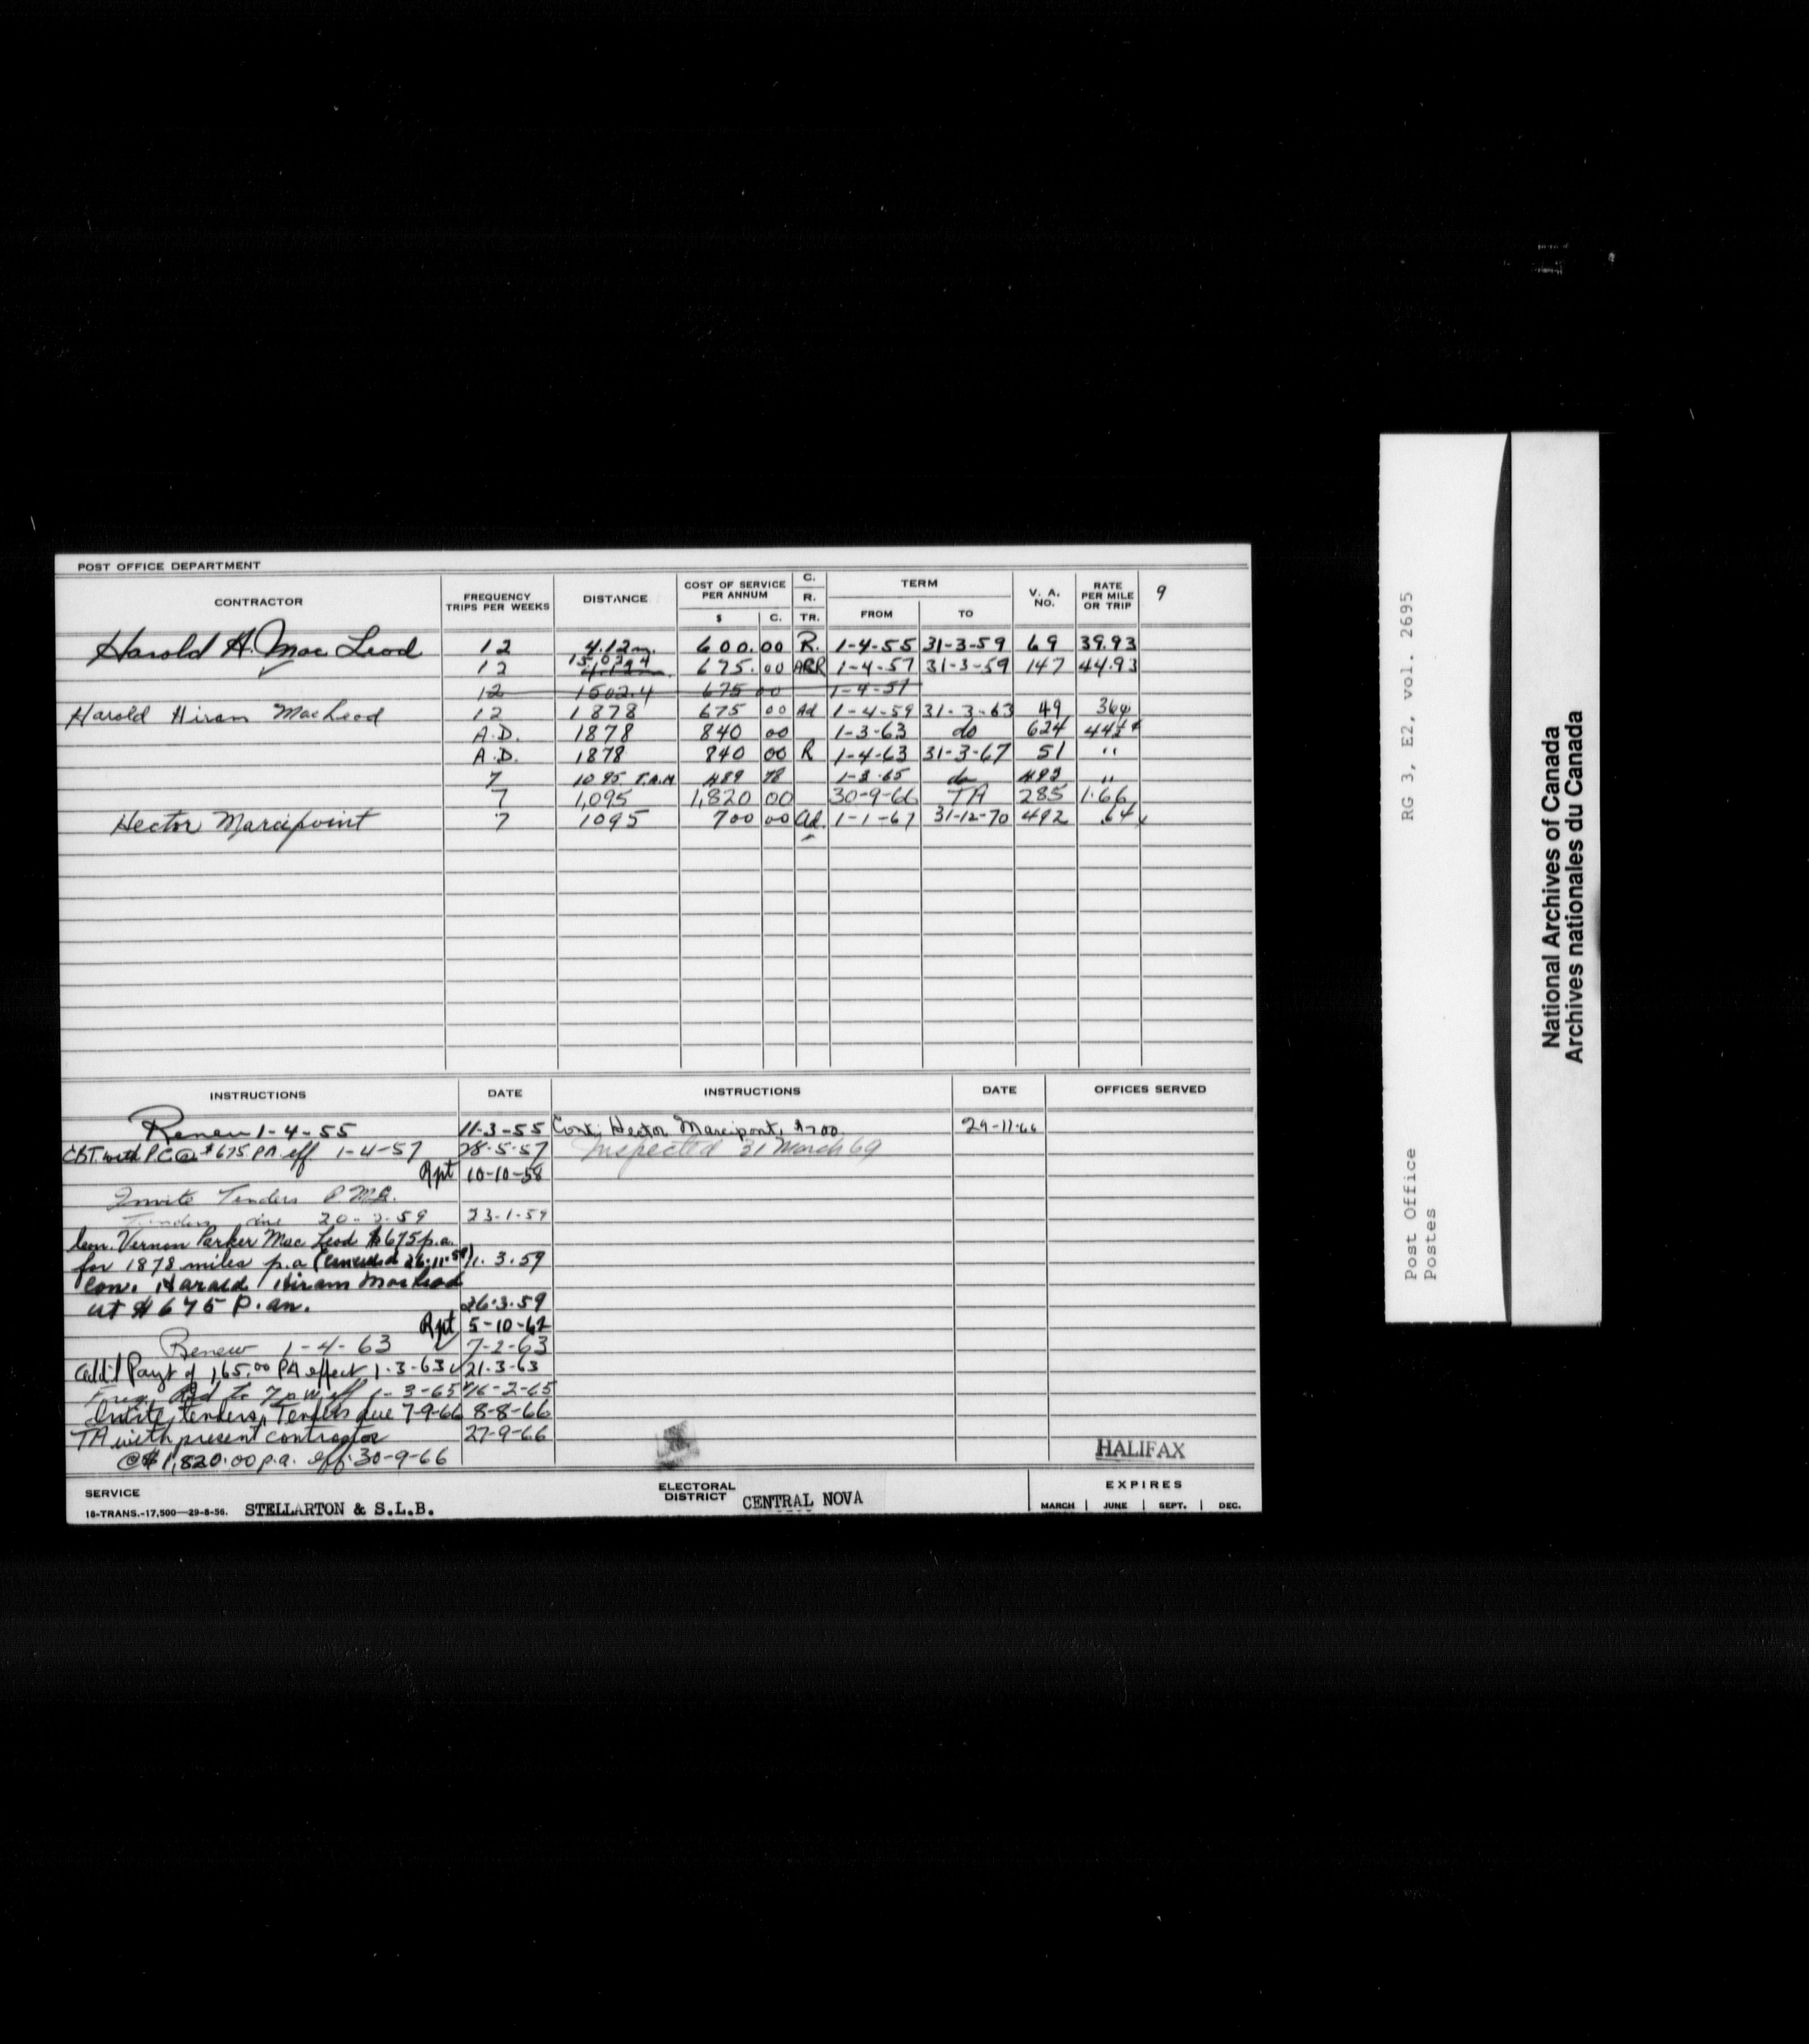 POST OFFICE DEPARTMENT
CONTRACTOR FREQUENCY TRIPS PER WEEKS DISTANCE COST OF SERVICE PER ANNUM $ C. C. R. TR. TERM FROM TO V. A. NO. RATE PER MILE OR TRIP 9
Harold H. MacLeod 12 4.12m. 600.00 R. 1-4-55 31-3-59 69 39.93
12 4.12m 675.00 ARR 1-4-57 31-3-59 147 44.93
12 1502.4 675 00 1-4-57
Harold Hiram MacLeod 12 1878 675 00 Ad 1-4-59 31-3-63 49 36¢
A.D. 1878 840 00 1-3-63 do 624 44¾¢
A.D. 1878 840 00 R 1-4-63 31-3-67 51 "
7 1095 T.A.M 489 78 1-3-65 do 493 "
7 1,095 1,820 00 30-9-66 TA 285 1.66
Hector Marcipoint 7 1095 700 00 Ad. 1-1-67 31-12-70 492 .64
INSTRUCTIONS DATE INSTRUCTIONS DATE OFFICES SERVED
Renew 1-4-55 11-3-55 Cont. Hector Marcipont, $700. 29-11-66
CBT with P.C. @ $675 PA eff. 1-4-57 28-5-57 Inspected 31 March 69
Rpt 10-10-58
Invite Tenders P.M.
Tenders due 20-2-59 23-1-59
Con. Vernon Parker MacLeod $675 p.a.
for 1878 miles p.a (Cancelled 26.11.59) 11.3.59
Con. Harold Hiram MacLeod
at $675 P.an. 26.3.59
Rpt 5-10-62
Renew 1-4-63 7-2-63
Add'l Payt of 165.00 PA effect 1-3-63 21-3-63
Freq. Rd to 7 p w. eff 1-3-65 16-2-65
Invite tenders, Tenders due 7-9-66 8-8-66
TA with present contractor 27-9-66
@ $1,820.00 p.a. eff. 30-9-66
HALIFAX
SERVICE
18-TRANS.-17,500—29-8-56. STELLARTON & S.L.B.
ELECTORAL DISTRICT CENTRAL NOVA
EXPIRES
MARCH JUNE SEPT. DEC.
Post Office RG 3, E2, vol. 2695
Postes
National Archives of Canada
Archives nationales du Canada